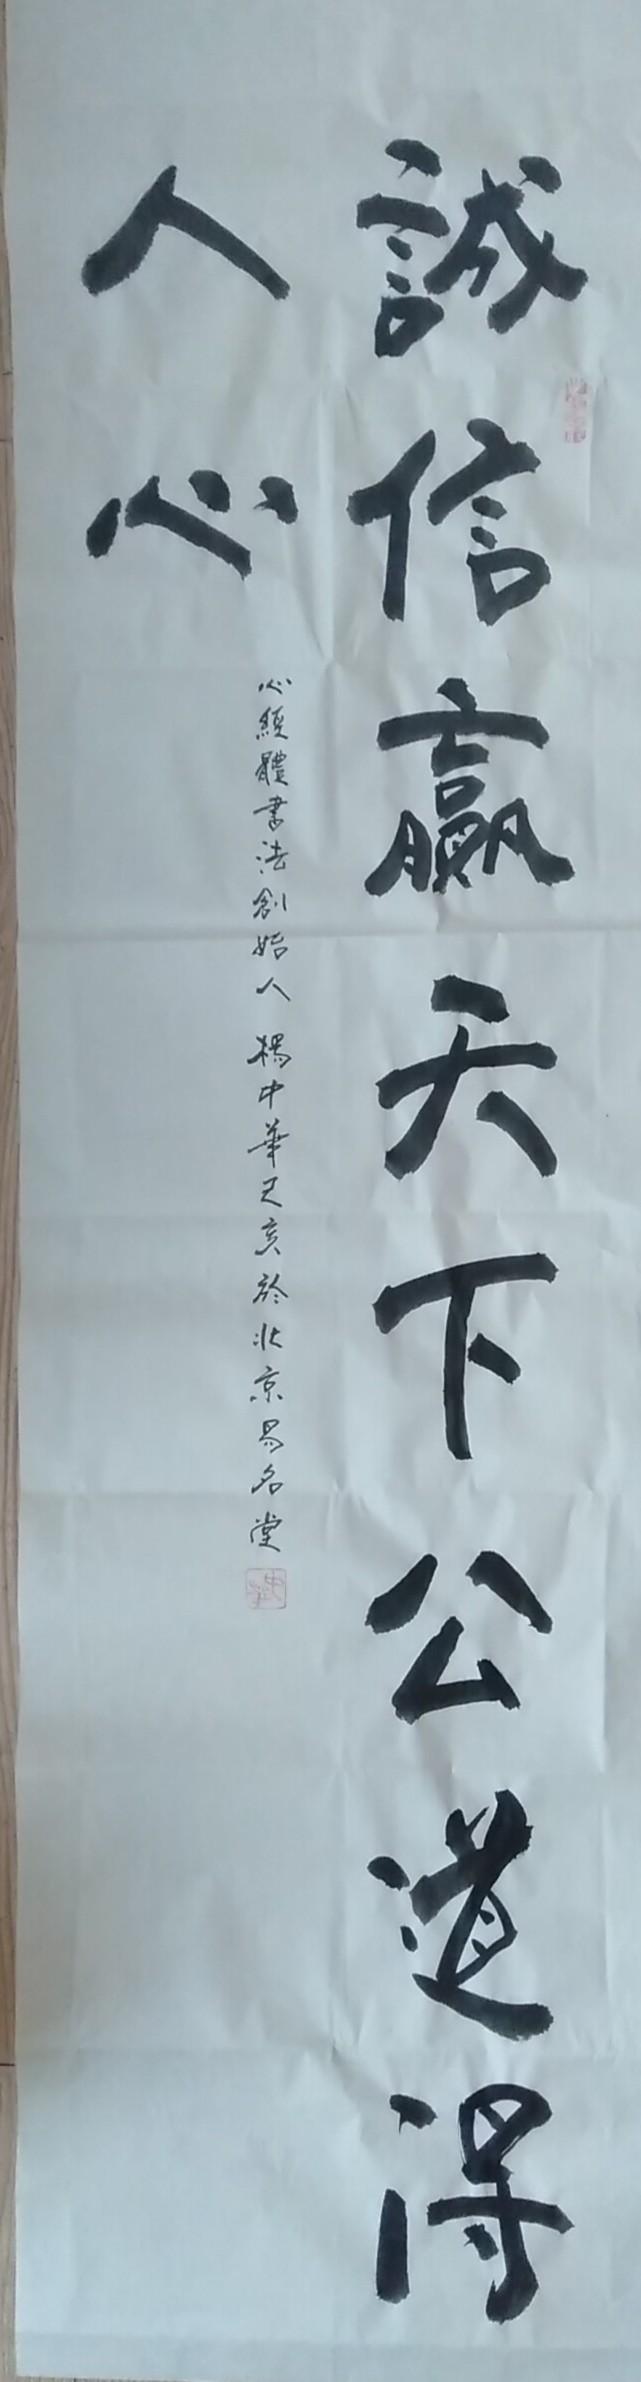 誠信贏天下公道得
人心
心經體書法創始人 楊中華己亥於北京易名堂